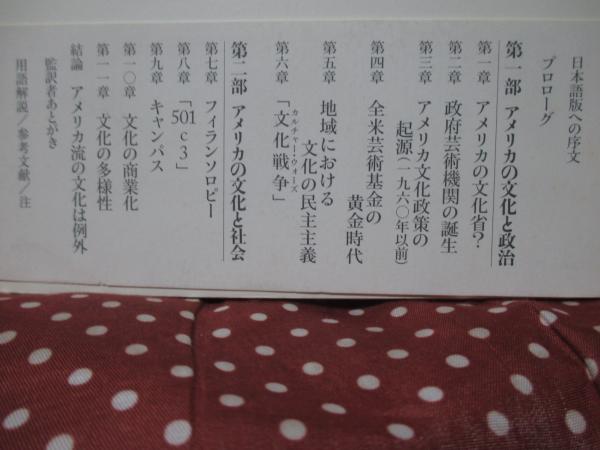 日本語版への序文
プロローグ
第一部 アメリカの文化と政治
第一章 アメリカの文化省?
第二章 政府芸術機関の誕生
第三章 アメリカ文化政策の
起源(一九六〇年以前)
第四章 全米芸術基金の
黄金時代
第五章 地域における
文化の民主主義
第六章 「文化戦争」
カルチャー・ウォーズ
第二部 アメリカの文化と社会
第七章 フィランソロピー
第八章 「501c3」
第九章 キャンパス
第一〇章 文化の商業化
第一一章 文化の多様性
結論 アメリカ流の文化は例外
監訳者あとがき
用語解説/参考文献/注